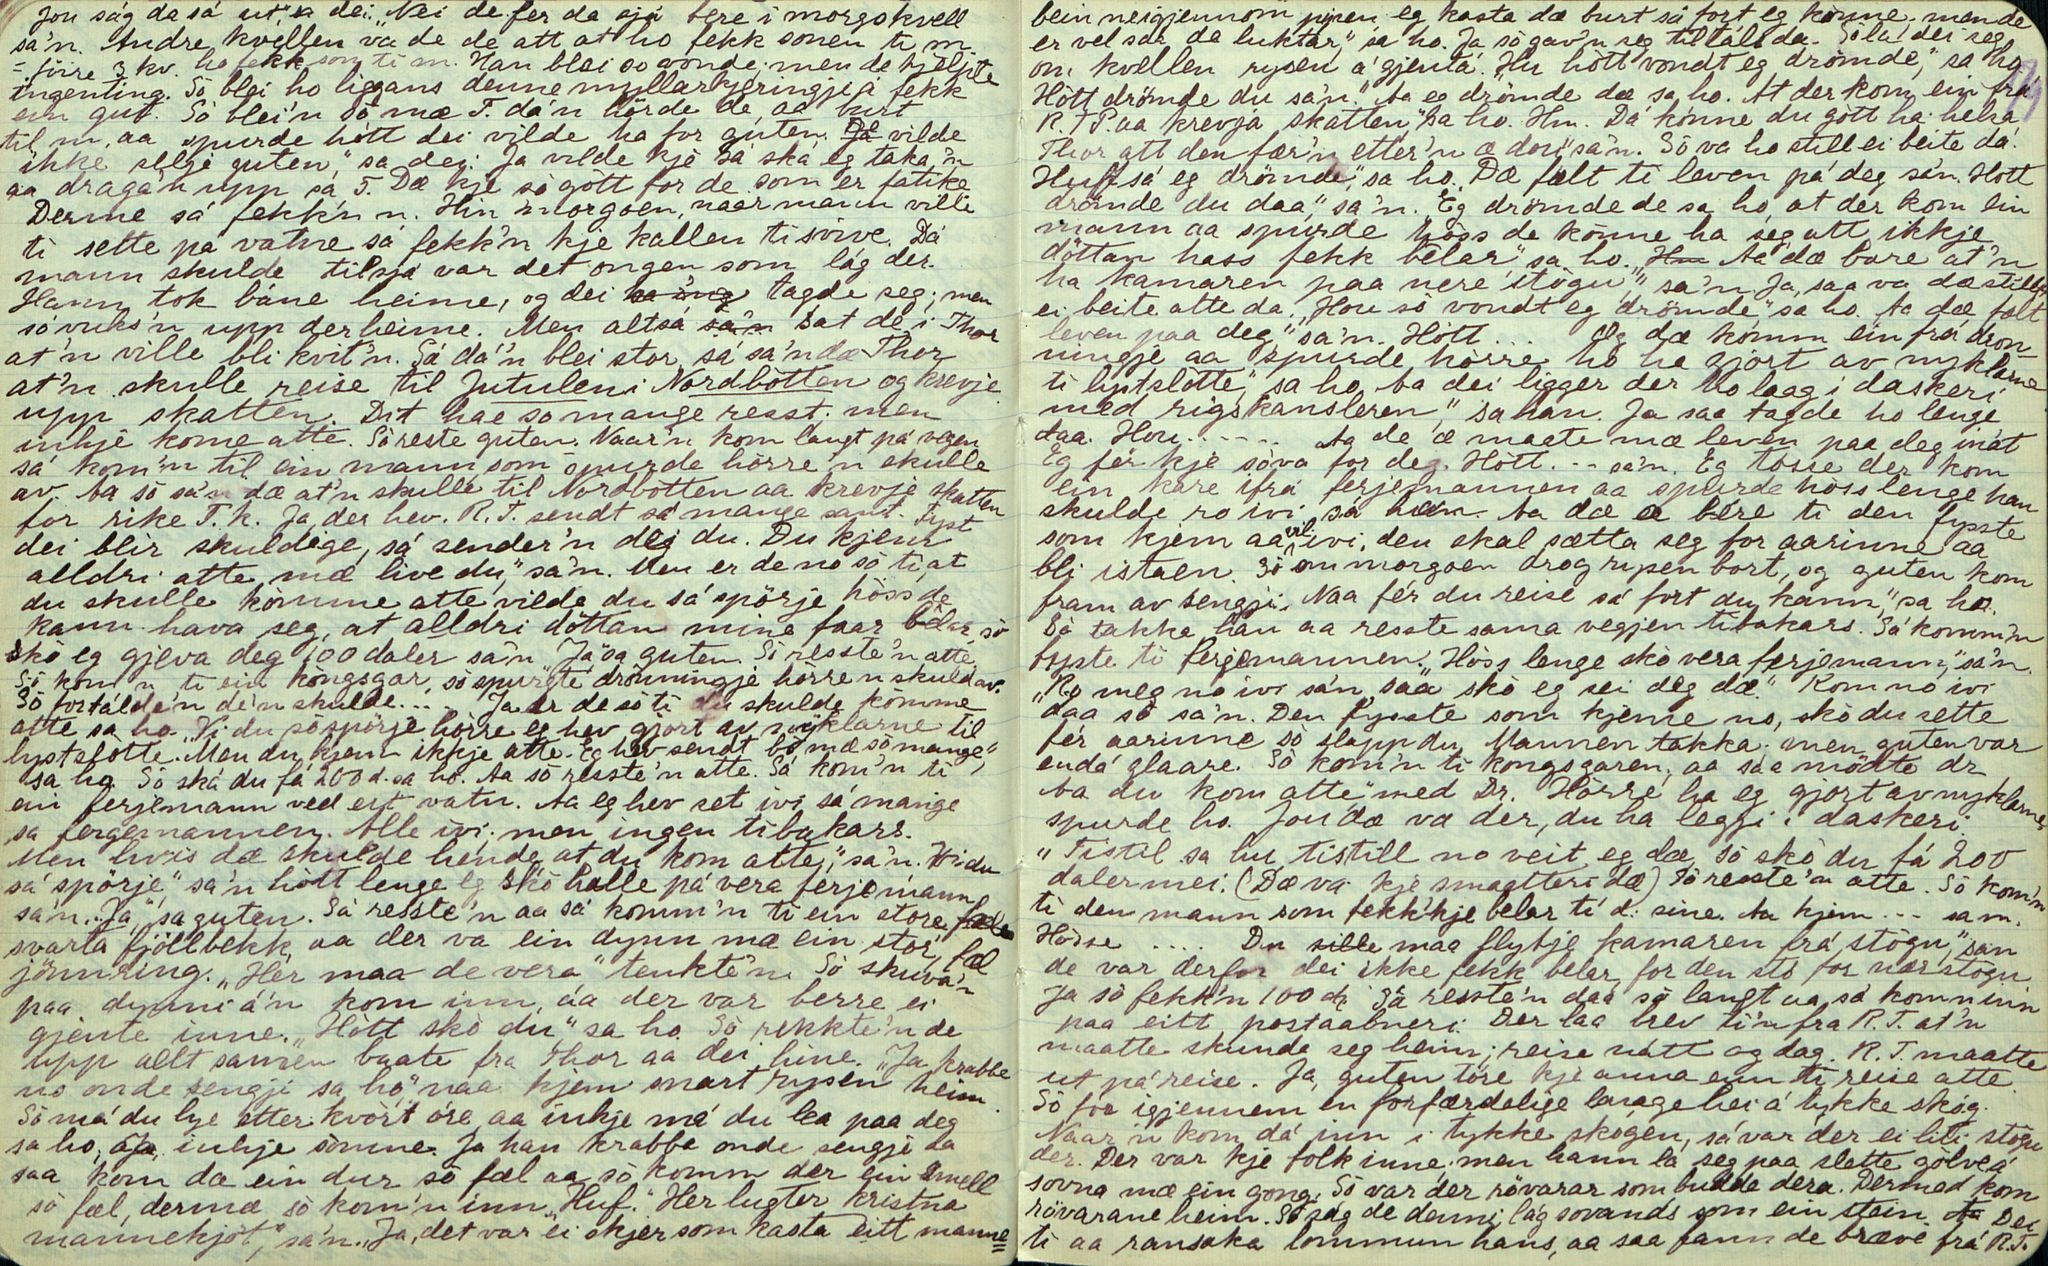 Jou såg da så ut, sa dei. Nei de fer da sjå bere i morgokvell
sa'n. Andre kvellen va de de att at ho fekk sonen ti m.
= föire 3 kv. ho fekk som ti m. Han blei so vonde; men de hjelpte
ingenting. Så blei ho liggans denne myllarkjeringji å fekk
ein gut. So blei'n so mæ T. da'n hörde de, aa burt
til m. aa spurde hött dei vilde ha for guten. De vilde
ikke selje guten, sa dei. Ja vilde kje så skå eg taka'n
aa draga'n upp sa T. Dæ kje så gött for de som er fatike
Derme så fekk'n n. Hin morgoen, naar mann ville
ti sette på vatne så fekk'n kje kallen ti svive. Då
mann skulde tilsjå var det ongen som låg der.
Hann tok båne heime, og dei tagde seg; men
so vuks'n upp der heime. Men altså sat de i Thor
at'n ville bli kvit'n. Så då'n blei stor, så sa'n dæ Thor
at'n skulle reise til Jutulen i Nordbötten og krevje
upp skatten. Dit hae so mange resst; men
inkje kome atte. Så reste guten. Naar'n kom langt på vegen
så kom'n til ein mann som spurde hörre'n skulle
av. Aa so sa'n dæ at'n skulle til Nordbötten aa krevje skatten
for rike T. k. Ja, der hev. R. T. sendt så mange sant. Fyst
dei blir skuldige, så sender'n deg du. Du kjem
alldri atte mæ live du," sa'n. Men er de no so ti, at
du skulle kömme atte vilde du så spörje höss de
kann hava seg, at alldri döttan mine faar belar, so
skö eg gjeva deg 100 daler sa'n "Ja" sa guten. So resste'n atte
So kom'n ti ein kongsgar, so spurgte dronningje hörre n skuld av.
So fortålde'n de'n skulde.... Ja er de so ti du skulde kömme
atte sa ho. Vi du so spörje hörre eg hev gjort av nyklarne til
lystslotte. "Men du kjem ikkje atte. Eg hev sendt bo mæ so mange,"
sa ho. So skå du få 200 d. sa ho. Aa so resste'n atte. Så kom'n ti
ein ferjemann ved eit vatn. Aa eg hev set ivi så mange
sa fergemannen. Alle ivi; men ingen tibakars.
Men hvis dæ skulde hende at du kom atte," sa'n. Vi du
så spörje," sa'n hött lenge eg skö halle på vera ferjemann
sa'n. "Ja," sa guten. Så resste'n aa så komm'n ti ein store
svarta fjöllbekk, aa der va ein dynn mæ ein stor, fæl
jönnring. "Her maa de vera" tenkte'n. So skuva'n
paa dynni å'n kom inn, aa der var berre ei
gjente inne. "Hött skö du" sa ho. So rekkte'n de
upp allt samen baate fra Thor aa dei hine. "Ja krabbe
no onde sengji sa ho", naa kjem snart rysen heim.
Så må du lye etter kvört öre aa inkje må du lea paa deg
sa ho, inkje sömne. Ja han krabba onde sengji da
saa kom dæ ein dur so fæl aa so komm der ein smell
so fæl, dermæ so kom'n inn. "Huf." Her lugter kristna
mannekjöt," sa'n. "Ja, det var ei skjer som kasta eitt manne=
bein neigjennom pipen, eg kasta dæ burt så fort eg könne, men de
er vel sår de luktar," sa ho. Ja so gav'n seg til tåls da. Så la dei seg
om kvellen rysen å gjenta. "Hu hött vondt eg drömde," sa ho
Hött drömde du sa'n." Aa eg drömde dæ sa ho. At der kom ein frå
R. T. aa krevja skatten" sa ho. Hm. Då könne du gött ha helsa
Thor att den fær'n etter'n æ dou sa'n. Så va ho still ei beite då.
Huf så eg drömde," sa ho. Dæ fælt ti leven på deg sa'n. Hött
drömde du daa," sa'n. "Eg drömde de sa ho, at der kom ein
mann aa spurde höss de könne ha seg att ikkje
döttan hass fekk belar" sa ho. Aa dæ bare at'n
ha kamaren paa nere stögu" sa'n. Ja, saa va dæ still
ei beite atte da. "Hou so vondt eg drömde" sa ho. Aa dæ fælt
leven paa deg," sa'n. Hött ... Og dæ komm ein frå dron
ningje aa spurde hörre ho ha gjort av nyklarne
ti lystslotte," sa ho. Aa dei ligger der ho laag i daskeri
med rigskansleren," sa han. Ja saa tagde ho lenge
daa. Hou...... Aa de æ maate mæ leven paa deg inåt
Eg fer kje söva for deg. Hött... sa'n. Eg tösse der kom
ein kare ifrå ferjemannen aa spurde höss lenge han
skulde ro ivi sa han. Aa dæ æ bere ti den fysste
som kjem aa vil ivi, den skal sætta seg for aarinne aa
bli istaen. So om morgoen drog rysen bort, og guten kom
fram av sengji. Naa fér du reise så fort du kann," sa ho.
Så takka han aa resste sama vegjen tibakars. Så komm'n
fyste ti ferjemannen. "Höss lenge skö vera ferjemann," sa'n.
"Ro meg no ivi sa'n, saa skö eg sei deg dæ." Kom no ivi
daa so sa'n. Den fysste som kjeme no, skö du sette
fér aarinne so slapp du. Mannen takka; men guten var
endå glaare. Så kom'n ti kongsgaren, aa saa mödte dr
Aa du kom atte" med Dr. Hörre ha eg gjort av nyklarne,
spurde ho. Jou dæ va der, du ha leggji i daskeri.
"Tistil sa hu, tistill no veit eg dæ, so skö du få 200
daler mei. (Dæ va kje smaatteri dæ) So resste'n atte. So kom'n
ti den mann som fekk'kje belar ti d. sine. Aa kjem ... sa m.
Hosse .... Du maa flytje kamaren frå stögu," sa'n
de var derfor dei ikke fekk belar, for den sto for nær stögu
Ja so fekk'n 100 d. Så resste'n daa so langt aa så kom n inn
paa eitt postaabneri. Der laa brev ti'n fra R. T. at'n
maatte skunde seg heim; reise nått og dag. R. T. maatte
ut på reise. Ja, guten töre kje anna enn ti reise atte
So for igjennem en forfærdelige lange hei å tykke skog.
Naar'n kom då inn i tykke skogen, så var der ei liti stögu
der. Der var kje folk inne; men hann la seg paa slette gölve å
sovna mæ ein gong. Så var der rövarar som budde dera. Dermed kom
rövarane heim. So såg de denni låg sovands som ein stein. Dei
ti aa ransaka lommun hans, aa saa fann de bræve frå R.T.